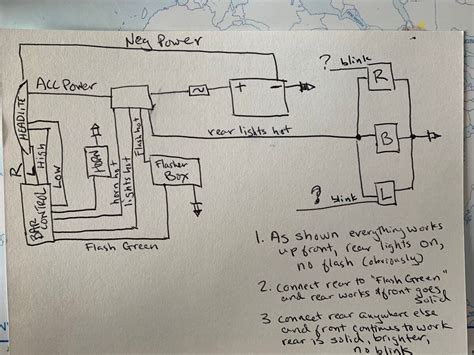 Neg Power
? blink
R
Acc Power
+
-
HEADLITE
R
L
High
LOW
HORN
horn hot
lights hot
Flash hot
Flasher
Box
rear lights hot
B
? blink
L
BAR
CONTROL
Flash Green
1. As shown everything works
up front, rear lights on,
no flash (obviously)
2. connect rear to "Flash Green"
and rear works & front goes
solid
3 connect rear anywhere else
and front continues to work
rear is solid, brighter,
no blink